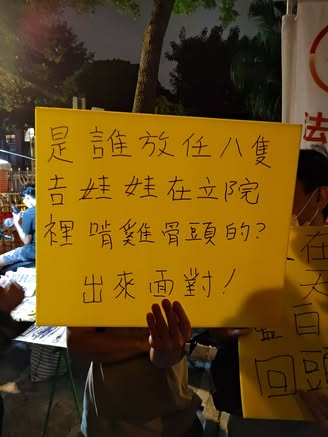 是誰放任八隻
吉娃娃在立院
裡啃雞骨頭的?
出來面對!
法
在
白
回頭